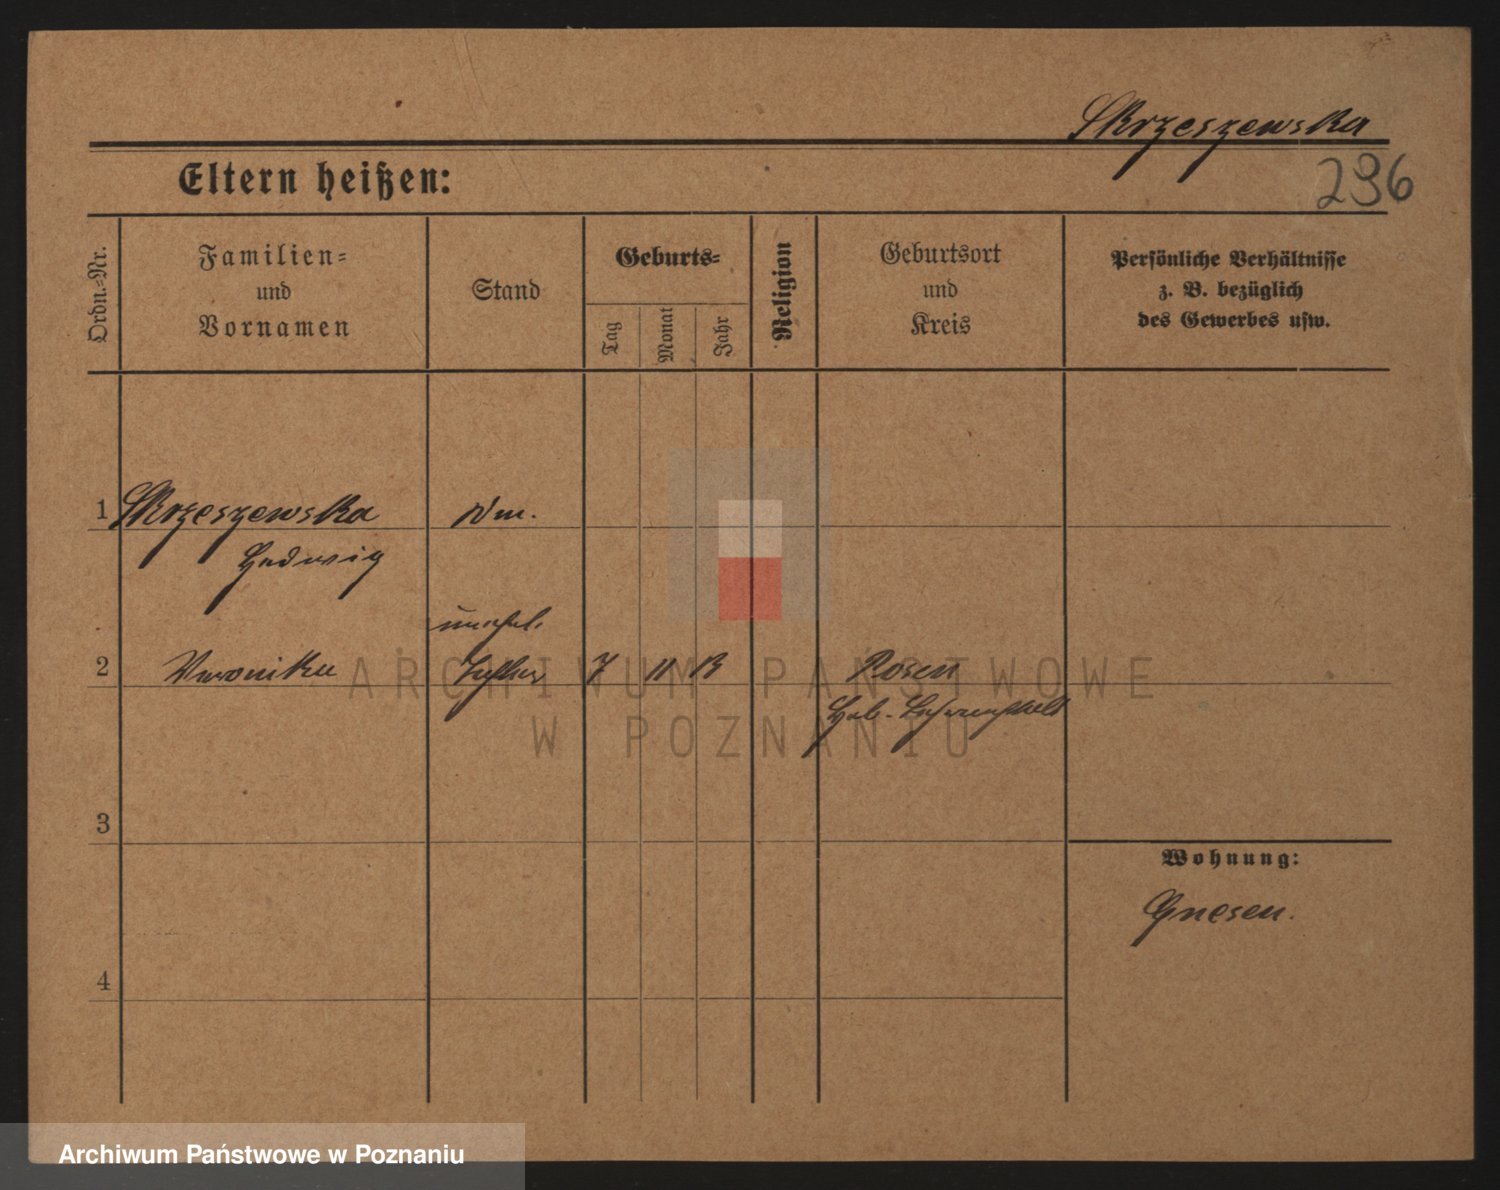 Skrzeszewska
296
Eltern heißen:
Ordn.=Nr.
Familien=
und
Vornamen
Stand
Geburts=
Tag
Monat
Jahr
Religion
Geburtsort
und
Kreis
Persönliche Verhältnisse
z. B. bezüglich
des Gewerbes usw.
1 Skrzeszewska
Hedwig
unehel.
2 Veronika Tochter 7 11 13 Posen
Heb.
3
Wohnung:
Gnesen.
4
ARCHIWUM PAŃSTWOWE
W POZNANIU
Archiwum Państwowe w Poznaniu